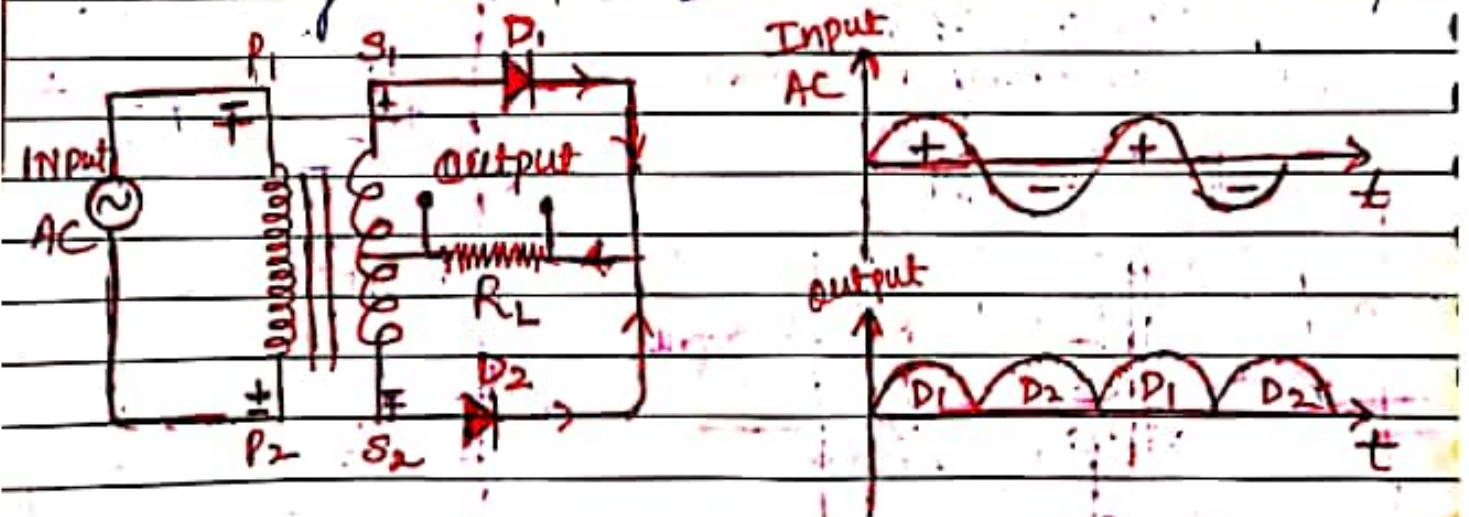 P1 S1 D1
∓ ±
INPUT
AC
Output
RL
D2
±
∓
P2 S2
Input
AC
+ +
- -
t
output
D1 D2 D1 D2
t